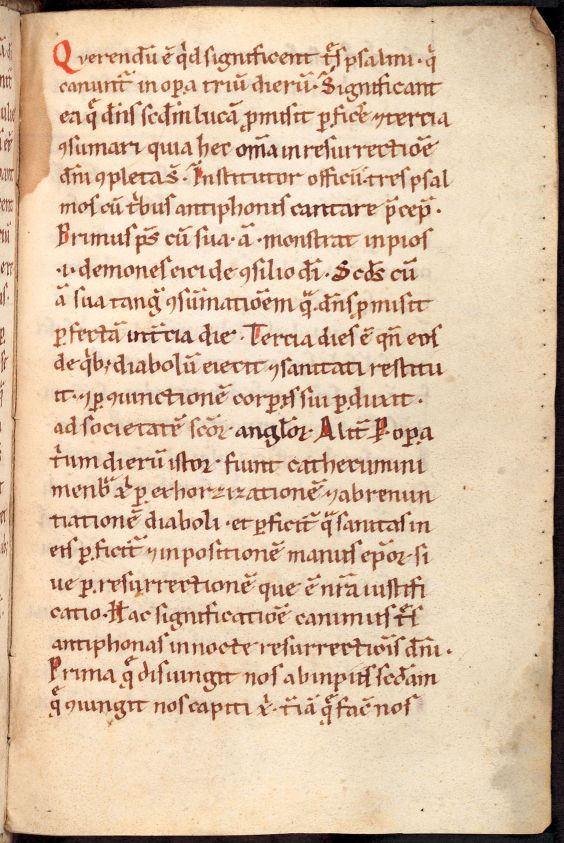 Querendū ē qͥd significent tͤs psalmi · qͥ
canunt̄ in oꝑa triū dierū · Significant
ea qͣ dn̄s scd̄m lucā ꝓmisit ꝑficͤe ⁊ tercia
ꝯsumari quia hec om̄a in resurrectiōe
dn̄i ꝯpleta s̄ · Institutor officii tres psal
mos cū tͥbus antiphonis cantare p̄cep̄ ·
Primus ps̄ cū sua · a̅ · monstrat inpios
·i· demones eici de ꝯsilio dī · Scd̄s cū
a̅ sua tangͥ ꝯsūmatiōem qͣ · dn̄s ꝓmisit
ꝑfectā in t̄cia die · Tercia dies ē qn̄ eos
de qͥbꝫ diabolū eiecit ⁊ sanitati restitu
it · ⁊ ꝑ ꝯiunctionē corꝑis sui ꝑduxit ·
ad societatē sc̄oꝝ angl̄oꝝ Alit̄ Pro oꝑa
tͥum dierū istoꝝ · fiunt cathecumini
menb͛ xͥ ꝑ exhorzizationē ⁊ abrenun
tiationē diaboli · et ꝑficit̄ qͣ sanitas in
eis ꝑficit̄ ⁊ inpositionē manus ep̄oꝝ · si
ue ꝑ resurrectionē que ē nr̄a iustifi
catio · Hac significatiōe canimus tͤs
antiphonas in nocte resurrectiōis dn̄i ·
Prima qͣ disiungit nos ab inpiis scd̄am
qͣ ꝯiungit nos capiti xͥ · t̄ia qͣ fac̄ nos